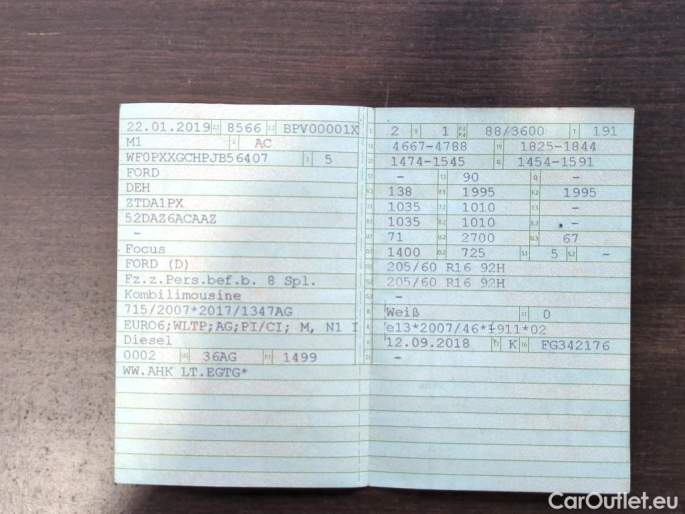 22.01.2019 8566 BPV00001X
M1 AC
WF0PXXGCHPJB56407 5
FORD
DEH
ZTDA1PX
52DAZ6ACAAZ
-
Focus
FORD (D)
Fz.z.Pers.bef.b. 8 Spl.
Kombilimousine
715/2007*2017/1347AG
EURO6;WLTP;AG;PI/CI; M, N1 I
Diesel
0002 36AG 1499
WW.AHK LT.EGTG*
2 1 88/3600 191
4667-4788 1825-1844
1474-1545 1454-1591
- 90 -
138 1995 1995
1035 1010 -
1035 1010 -
71 2700 67
1400 725 5 -
205/60 R16 92H
205/60 R16 92H
-
Weiß 0
e13*2007/46*1911*02
12.09.2018 K FG342176
-
CarOutlet.eu